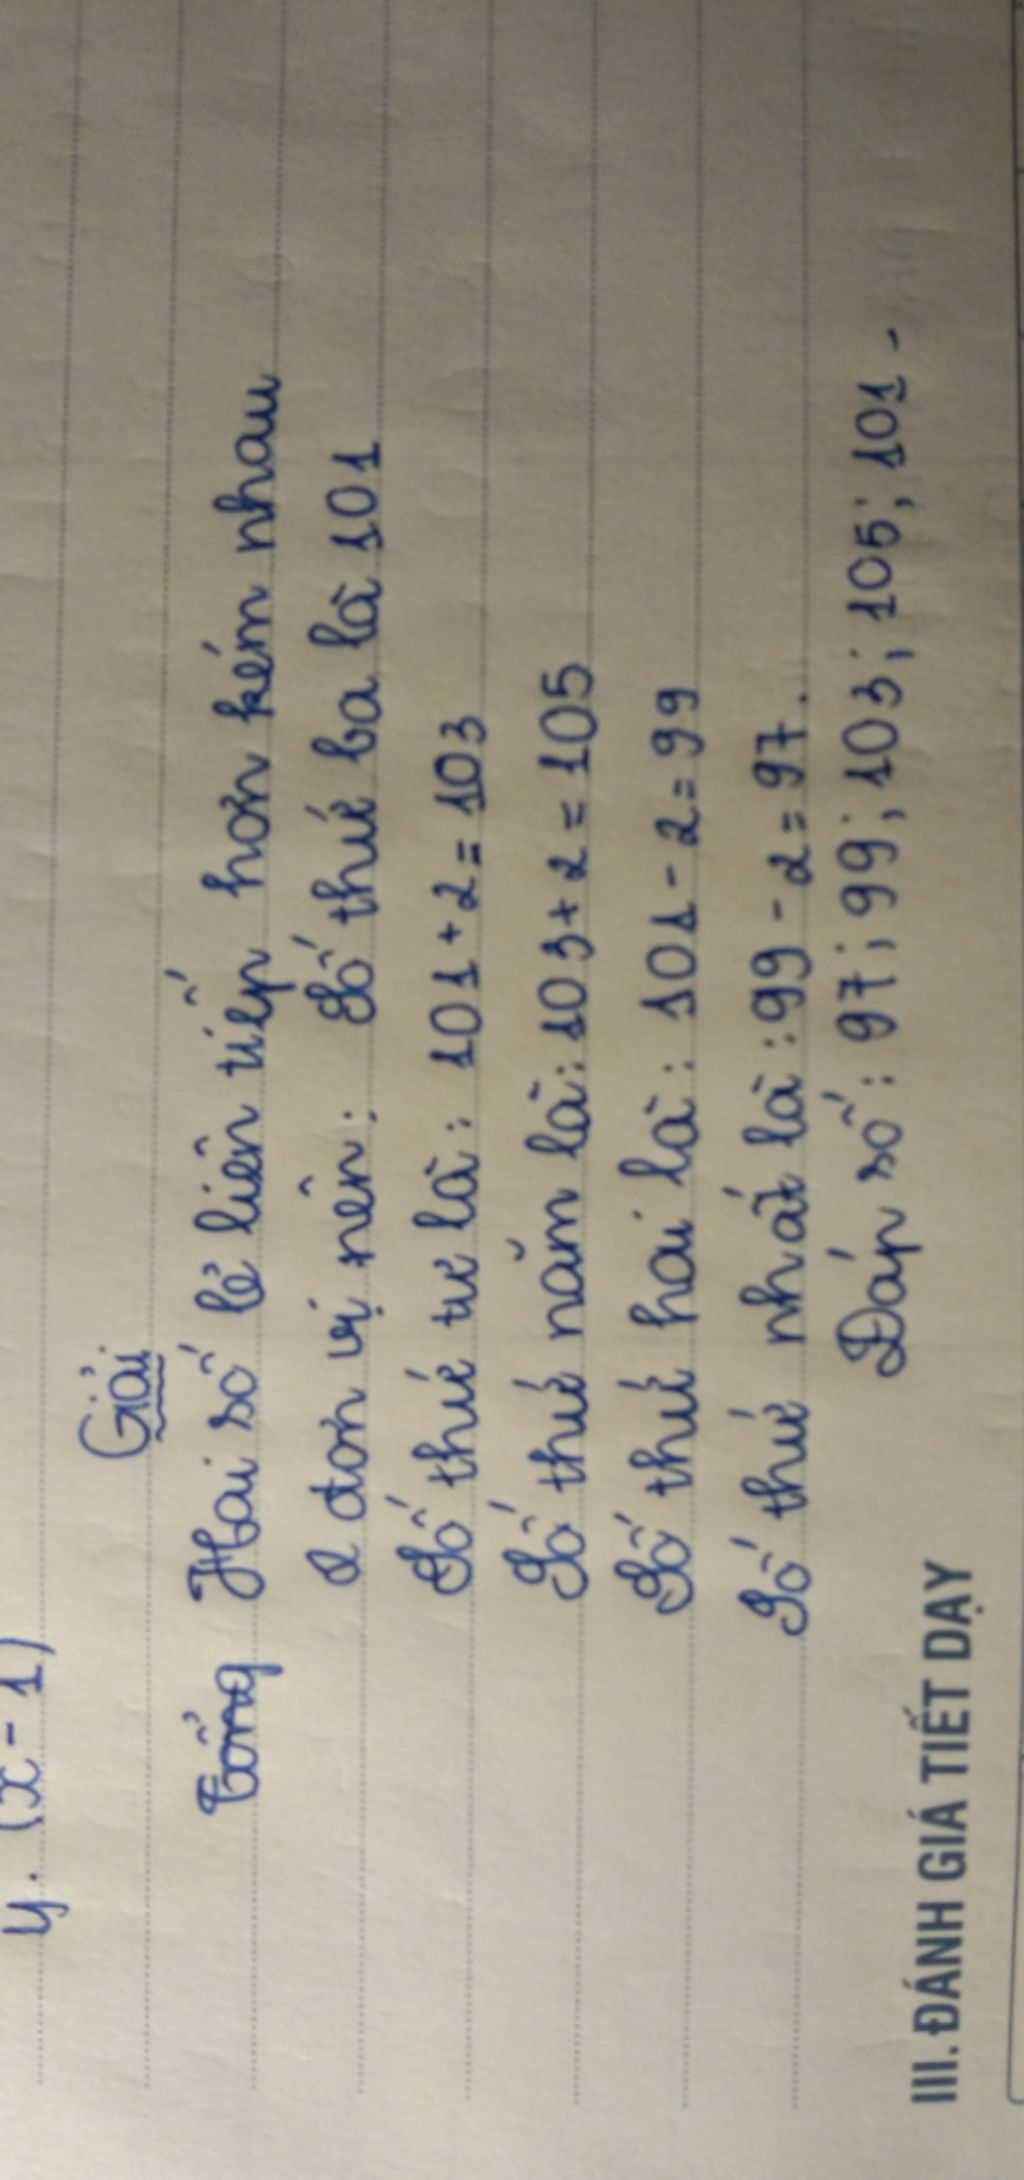 y. (x - 1)
Giải
Tổng Hai số lẻ liên tiếp hơn kém nhau
2 đơn vị nên: Số thứ ba là 101
Số thứ tư là: 101 + 2 = 103
Số thứ năm là: 103 + 2 = 105
Số thứ hai là: 101 - 2 = 99
Số thứ nhất là: 99 - 2 = 97.
Đáp số: 97; 99; 103; 105; 101 -
III. ĐÁNH GIÁ TIẾT DẠY